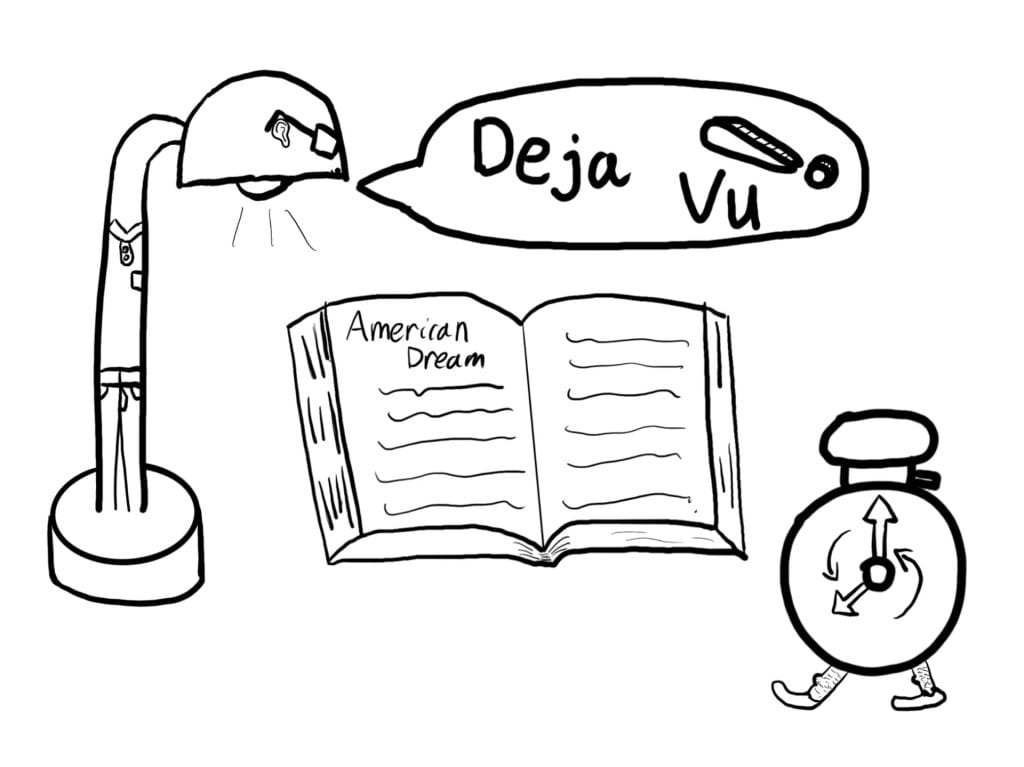 Deja
Vu
American
Dream